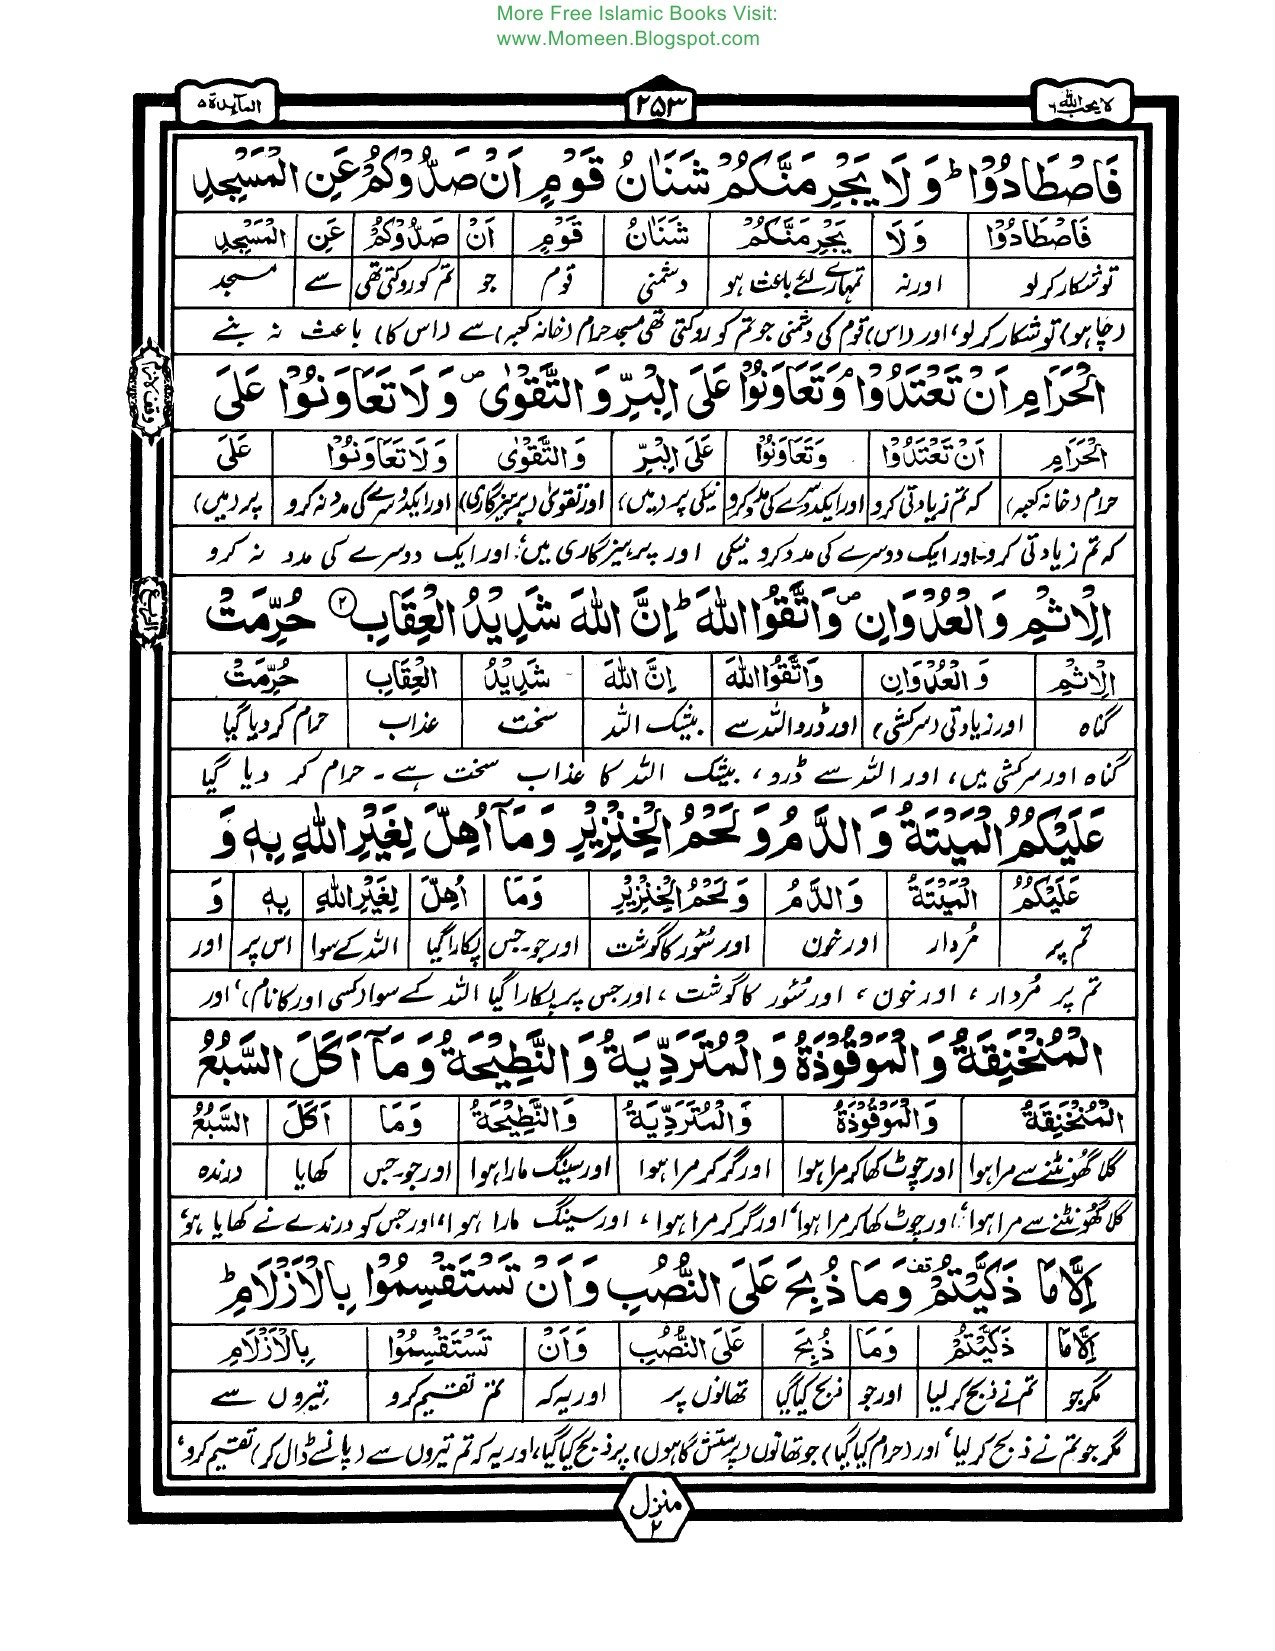 More Free Islamic Books Visit:
www.Momeen.Blogspot.com
لا یحب اللہ ٦ ۲۵۳ المآىِٕدة ۵
فَاصْطَادُوْا ؕ وَ لَا یَجْرِمَنَّكُمْ شَنَاٰنُ قَوْمٍ اَنْ صَدُّوْكُمْ عَنِ الْمَسْجِدِ
فَاصْطَادُوْا وَ لَا یَجْرِمَنَّكُمْ شَنَاٰنُ قَوْمٍ اَنْ صَدُّوْكُمْ عَنِ الْمَسْجِدِ
تو شکار کر لو اور نہ تمہارے لئے باعث ہو دشمنی قوم جو تم کو روکتی تھی سے مسجد
(چاہو) تو شکار کر لو، اور (اس) قوم کی دشمنی جو تم کو روکتی تھی مسجد حرام (خانہ کعبہ) سے (اس کا) باعث نہ بنے
الْحَرَامِ اَنْ تَعْتَدُوْا ۘ وَ تَعَاوَنُوْا عَلَى الْبِرِّ وَ التَّقْوٰى ۪ وَ لَا تَعَاوَنُوْا عَلَى
الْحَرَامِ اَنْ تَعْتَدُوْا وَ تَعَاوَنُوْا عَلَى الْبِرِّ وَ التَّقْوٰى وَ لَا تَعَاوَنُوْا عَلَى
حرام (خانہ کعبہ) کہ تم زیادتی کرو اور ایک دوسرے کی مدد کرو نیکی پر (میں) اور تقویٰ (پرہیزگاری) اور ایک دوسرے کی مدد نہ کرو پر (میں)
کہ تم زیادتی کرو۔ اور ایک دوسرے کی مدد کرو نیکی اور پرہیزگاری میں، اور ایک دوسرے کی مدد نہ کرو
الْاِثْمِ وَ الْعُدْوَانِ ۪ وَ اتَّقُوا اللّٰهَ ؕ اِنَّ اللّٰهَ شَدِیْدُ الْعِقَابِ ۲ حُرِّمَتْ
الْاِثْمِ وَ الْعُدْوَانِ وَ اتَّقُوا اللّٰهَ اِنَّ اللّٰهَ شَدِیْدُ الْعِقَابِ حُرِّمَتْ
گناہ اور زیادتی (سرکشی) اور ڈرو اللہ سے بیشک اللہ سخت عذاب حرام کر دیا گیا
گناہ اور سرکشی میں، اور اللہ سے ڈرو، بیشک اللہ کا عذاب سخت ہے۔ حرام کر دیا گیا
عَلَیْكُمُ الْمَیْتَةُ وَ الدَّمُ وَ لَحْمُ الْخِنْزِیْرِ وَ مَاۤ اُهِلَّ لِغَیْرِ اللّٰهِ بِهٖ وَ
عَلَیْكُمُ الْمَیْتَةُ وَ الدَّمُ وَ لَحْمُ الْخِنْزِیْرِ وَ مَا اُهِلَّ لِغَیْرِ اللّٰهِ بِهٖ وَ
تم پر مُردار اور خون اور سُور کا گوشت اور جو۔جس پکارا گیا اللہ کے سوا اس پر اور
تم پر مُردار، اور خون، اور سُور کا گوشت، اور جس پر پکارا گیا اللہ کے سوا (کسی اور کا نام)، اور
الْمُنْخَنِقَةُ وَ الْمَوْقُوْذَةُ وَ الْمُتَرَدِّیَةُ وَ النَّطِیْحَةُ وَ مَاۤ اَكَلَ السَّبُعُ
الْمُنْخَنِقَةُ وَ الْمَوْقُوْذَةُ وَ الْمُتَرَدِّیَةُ وَ النَّطِیْحَةُ وَ مَا اَكَلَ السَّبُعُ
گلا گھونٹنے سے مرا ہوا اور چوٹ کھا کر مرا ہوا اور گر کر مرا ہوا اور سینگ مارا ہوا اور جو۔جس کھایا درندہ
گلا گھونٹنے سے مرا ہوا، اور چوٹ کھا کر مرا ہوا، اور گر کر مرا ہوا، اور سینگ مارا ہوا، اور جس کو درندے نے کھایا ہو،
اِلَّا مَا ذَكَّیْتُمْ ۫ وَ مَا ذُبِحَ عَلَى النُّصُبِ وَ اَنْ تَسْتَقْسِمُوْا بِالْاَزْلَامِ ؕ
اِلَّا مَا ذَكَّیْتُمْ وَ مَا ذُبِحَ عَلَى النُّصُبِ وَ اَنْ تَسْتَقْسِمُوْا بِالْاَزْلَامِ
مگر جو تم نے ذبح کر لیا اور جو ذبح کیا گیا تھانوں پر اور یہ کہ تم تقسیم کرو تیروں سے
مگر جو تم نے ذبح کر لیا، اور (حرام کیا گیا) جو تھانوں (پرستش گاہوں) پر ذبح کیا گیا، اور یہ کہ تم تیروں سے (پانسے ڈال کر) تقسیم کرو،
منزل ۲